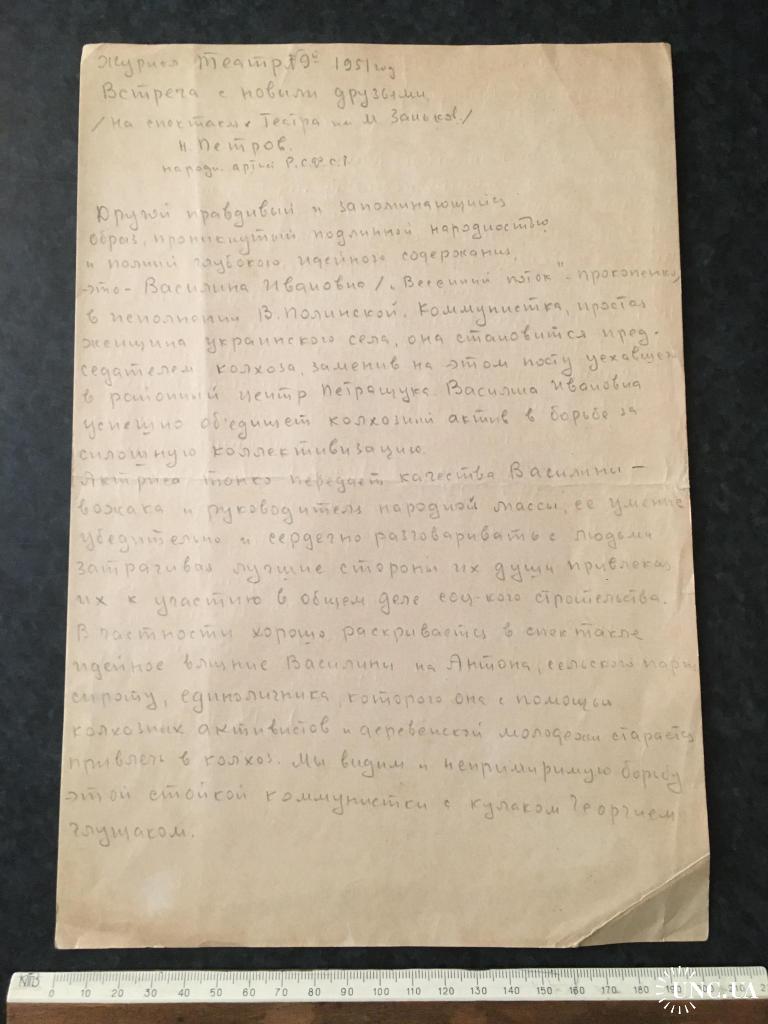 Журнал Театр №9й 1951 год
Встреча с новыми друзьями
/на спектаклях Театра им М. Заньков./
Н. Петров.
народн. артист Р.С.Ф.С.Р.
Другой правдивый и запоминающийся
образ, проникнутый подлинной народностью
и полный глубокого, идейного содержания,
-это- Василина Ивановна /„Весенний поток"-Прокопенко/
в исполнении В. Полинской. Коммунистка, простая
женщина украинского села, она становится пред-
седателем колхоза, заменив на этом посту уехавшего
в районный центр Петращука. Василина Ивановна
успешно объединяет колхозный актив в борьбе за
сплошную коллективизацию.
Актриса тонко передает качества Василины-
вожака и руководителя народной массы, ее умение
убедительно и сердечно разговаривать с людьми
затрагивая лучшие стороны их души привлекая
их к участию в общем деле соц-кого строительства.
В частности хорошо раскрывается в спектакле
идейное влияние Василины на Антона, сельского парня
сироту, единоличника, которого она с помощью
колхозных активистов и деревенской молодежи старается
привлечь в колхоз. Мы видим и непримиримую борьбу
этой стойкой коммунистки с кулаком Георгием
Глущаком.
0 10 20 30 40 50 60 70 80 90 100 110 120 130 140 150 160 170 180 190 200 210
UNC.UA